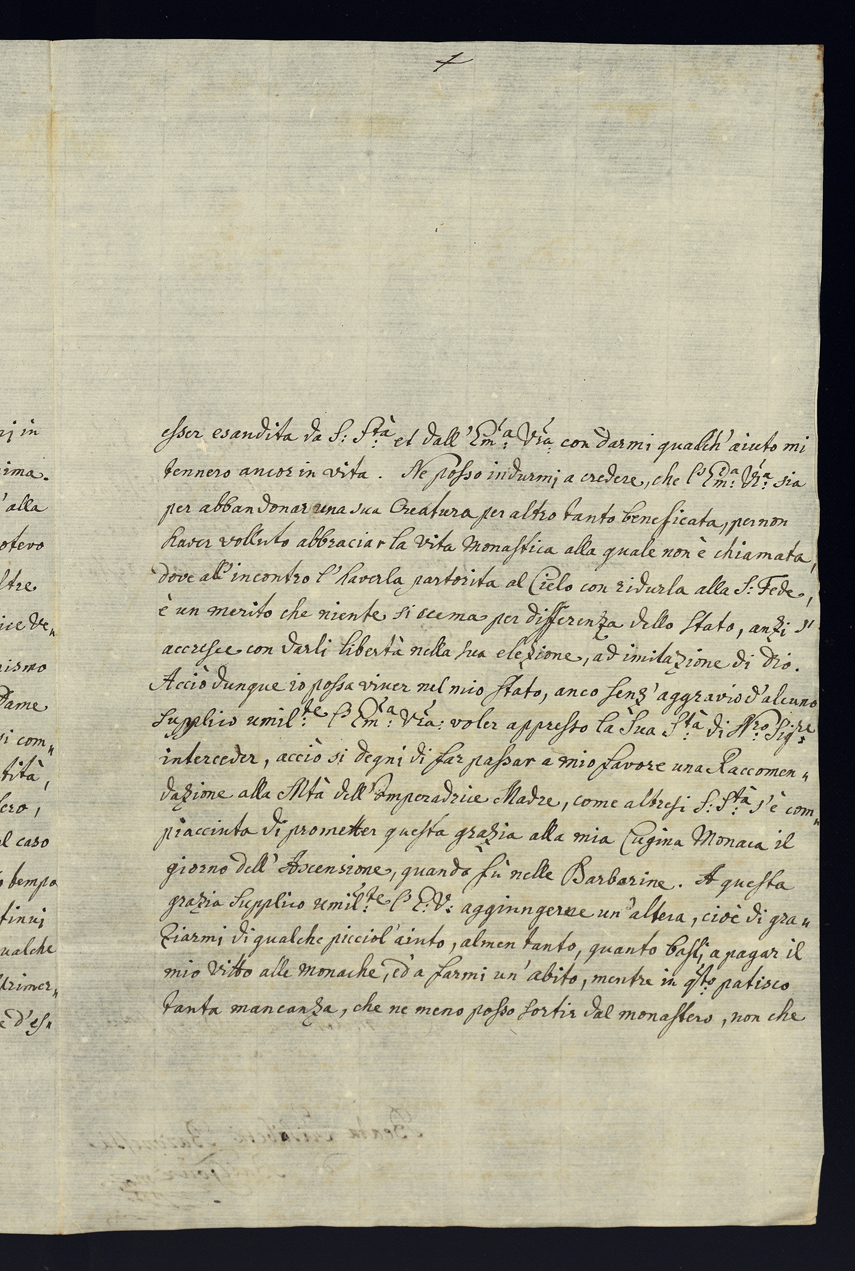 esser esaudita da S: S.tà et dall'Em.a V.ra con darmi qualch'aiuto mi
tennero ancor in vita. Ne posso indurmi a credere, che l'Em.a V.ra sia
per abbandonar una sua Creatura per altro tanto beneficata, per non
haver volluto abbraciar la Vita Monastica alla quale non è chiamata,
dove all'incontro l'haverla partorita al Cielo con ridurla alla S: Fede,
è un merito che niente si scema per differenza dello Stato, anzi s'
accresce con darli libertà nella sua elezione, ad imitazione di Dio.
Acciò dunque io possa viver nel mio stato, anco senz'aggravio d'alcuno
supplico umil.te l'Em.a V.ra voler appresso la Sua S.tà di N.ro Sig.re
interceder, acciò si degni di far passar a mio favore una Raccomen„
dazione alla Mtà dell'Imperadrice Madre, come altresi S: S.tà s'è com„
piacciuta di prometter questa grazia alla mia Cugina Monaca il
giorno dell'Ascensione, quando fù nelle Barbarine. A questa
grazia supplico umil.te l'E: V: aggiungerne un'altera, cioè di gra„
ziarmi di qualche picciol'aiuto, almen tanto, quanto basti, a pagar il
mio vitto alle monache, ed'a farmi un'abito, mentre in q.sto patisco
tanta mancanza, che ne meno posso sortir dal monastero, non che
rj in
ima.
'alla
otevo
ltre
ice Ve„
nismo
Dame
si com„
tità,
ero,
l caso
o tempo
tinuj
ualche
primer„
e d'es„